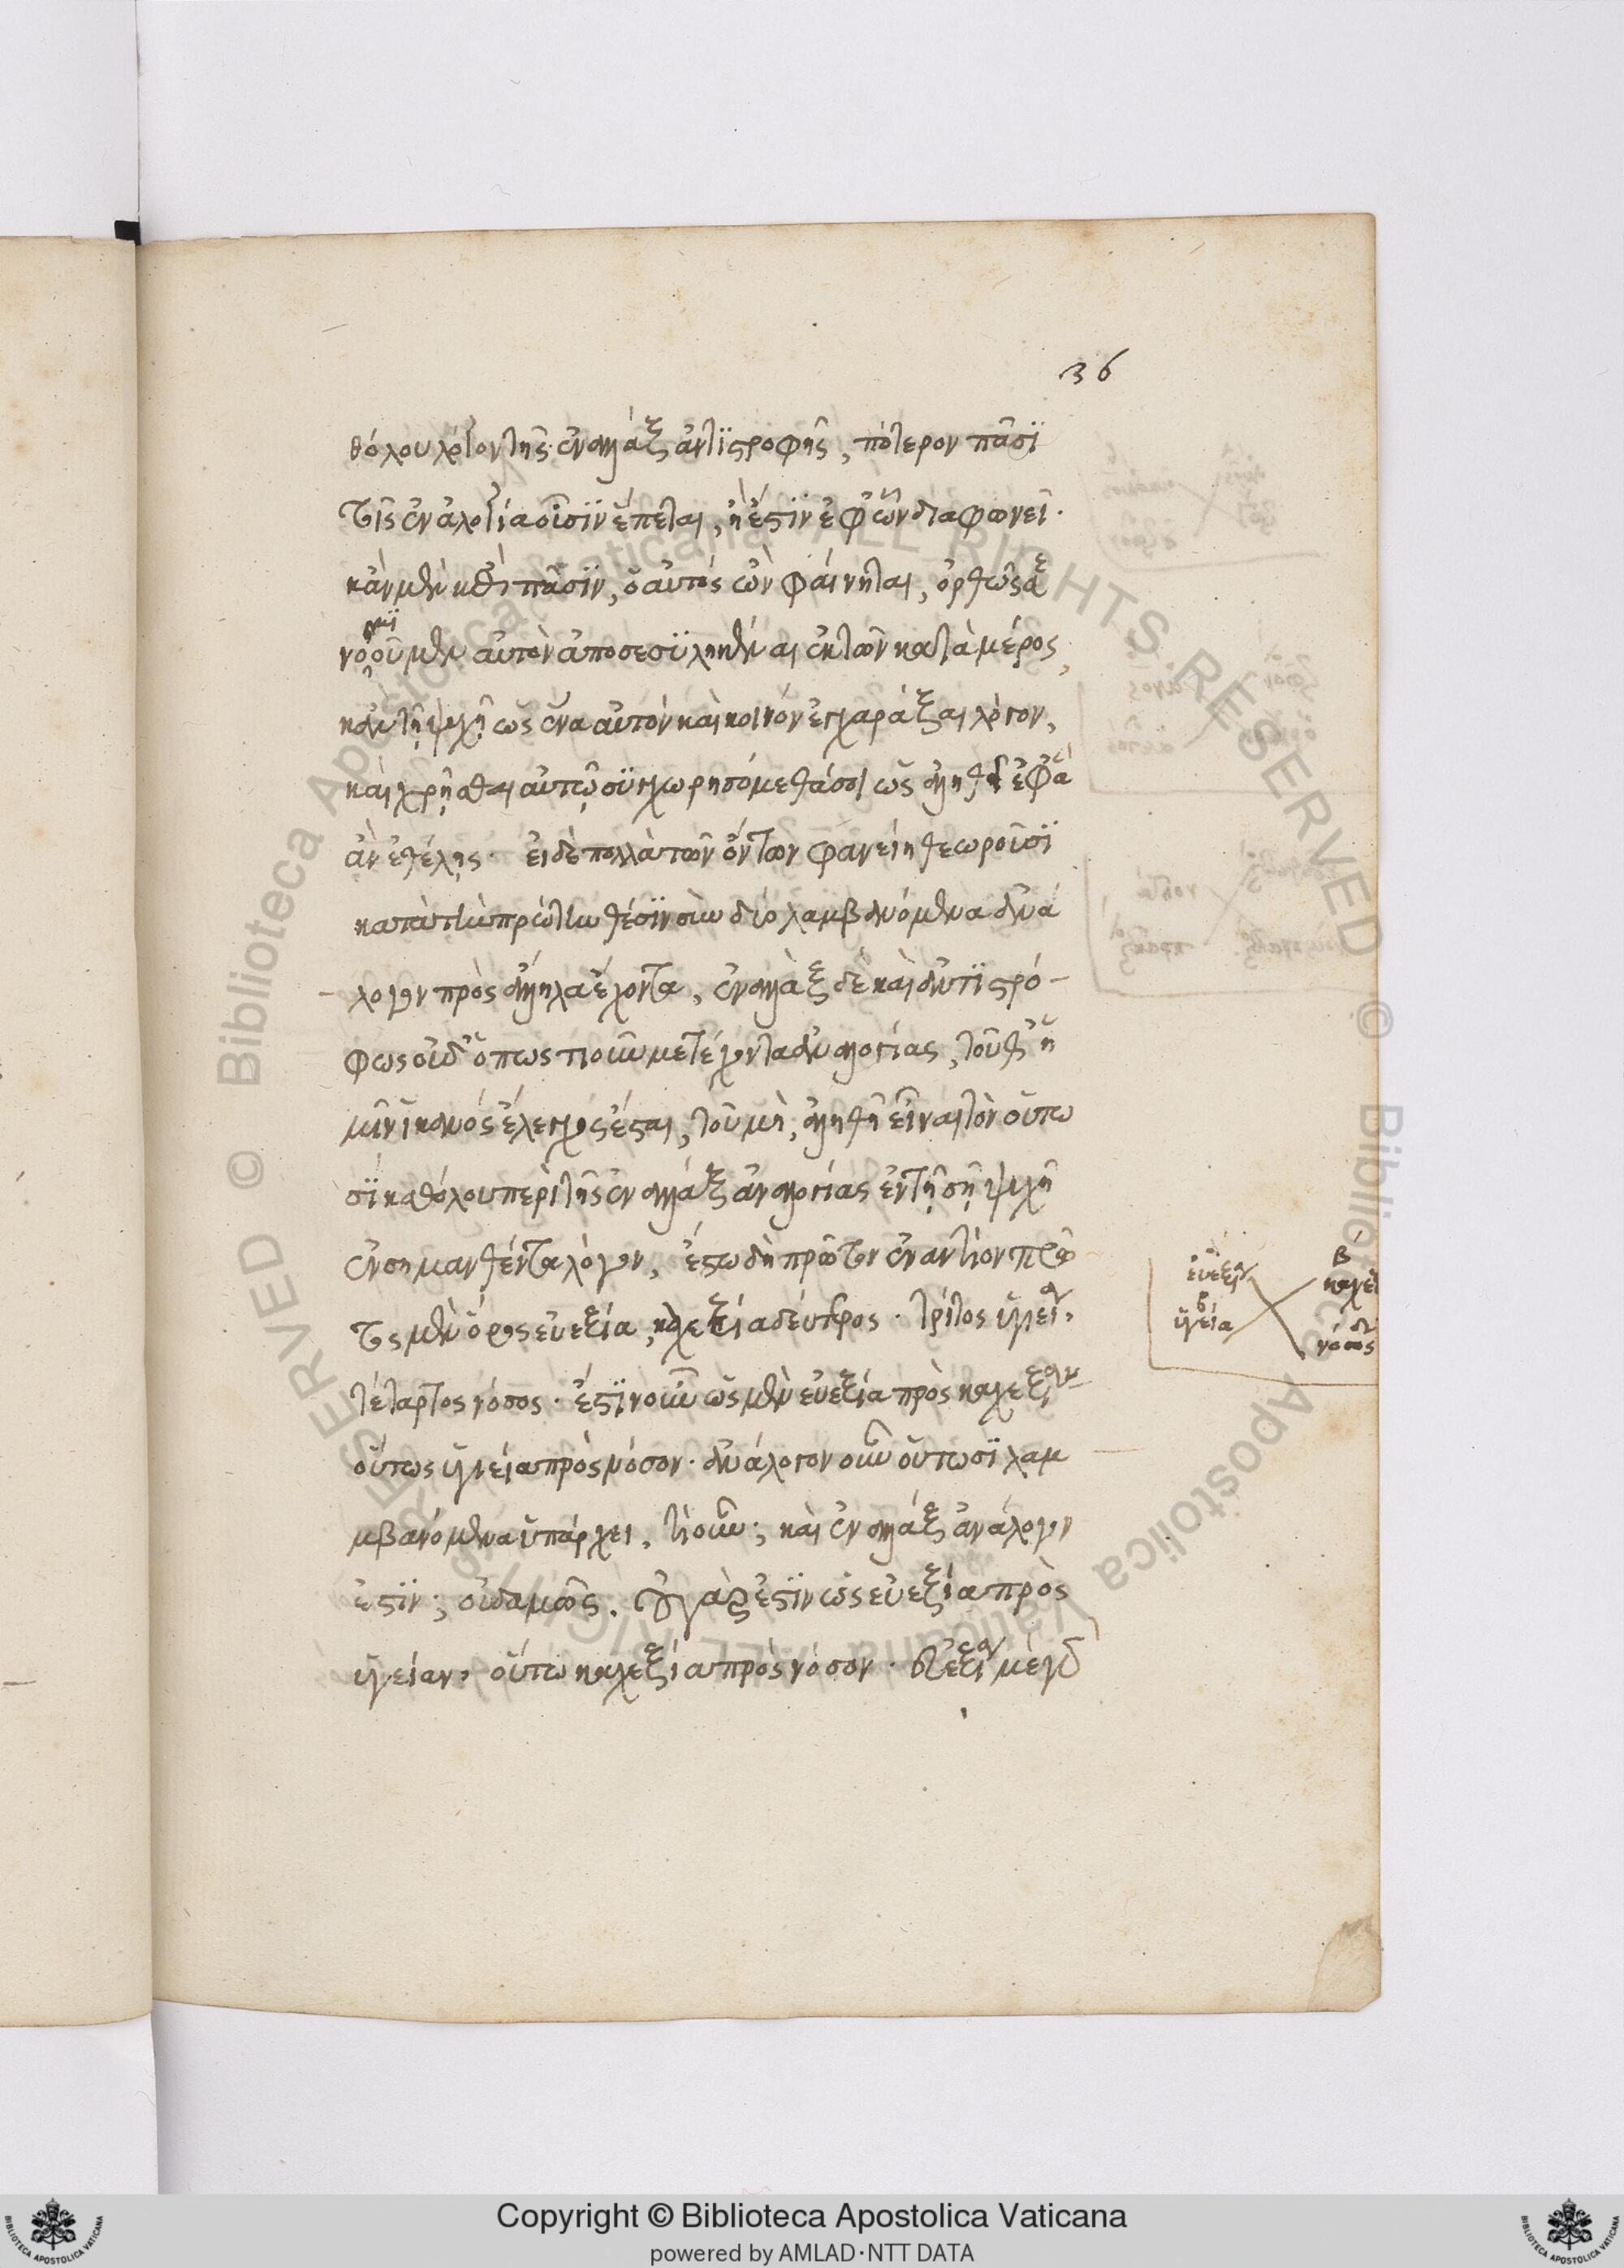 36
θόλου λόγον τῆς ἐναλλὰξ ἀντιστροφῆς, πότερον πᾶσι
τοῖς ἐν ἀναλογίᾳ οὖσιν ἕπεται, ἢ ἔστιν ἐφ' ὧν διαφωνεῖ.
κἂν μὲν ἐπὶ πᾶσιν, ὁ αὐτὸς ὢν φαίνηται, ὀρθῶς
μὲν αὐτὸν ἀποσεσυλληκέναι ἐκ τῶν κατὰ μέρος,
κἀν τῇ ψυχῇ ὡς ἕνα αὐτὸν καὶ κοινὸν ἐγχαράξαι λόγον,
καὶ χρῆσθαι αὐτῷ συγχωρησόμεθά σοι ὡς ἀληθεῖ ἐφ' ἃ
ἂν ἐθέλῃς. εἰ δὲ πολλὰ τῶν ὄντων φανείη θεωροῦσι
κατὰ τὴν πρώτην θέσιν σὺν δύο λαμβανόμενα ἀνά
λογον πρὸς ἄλληλα ἔχοντα, ἐναλλὰξ δὲ καὶ ἀντιστρό-
φως οὐδ' ὅπως τιοῦν μετέχοντα ἀναλογίας, τοῦθ' ἡ
μῖν ἱκανὸς ἔλεγχος ἔσται, τοῦ μὴ ἀληθῆ εἶναι τὸν οὕτω
σὶ καθόλου περὶ τῆς ἐναλλὰξ ἀναλογίας ἐν τῇ σῇ ψυχῇ
ἐνσημανθέντα λόγον, ἔστω δὴ πρῶτον ἐναντίον πρῶ
τος μὲν ὅρος εὐεξία, καχεξία δεύτερος. τρίτος ὑγεία,
τέταρτος νόσος. ἔστιν οὖν ὡς μὲν εὐεξία πρὸς καχεξίαν
οὕτως ὑγιεία πρὸς νόσον. ἀνάλογον οὖν οὑτωσὶ λαμ
μβανόμενα ὑπάρχει, τί οὖν; καὶ ἐναλλὰξ ἀνάλογον
ἐστιν; οὐδαμῶς. οὐ γάρ ἐστιν ὡς εὐεξία πρὸς
ὑγείαν, οὕτω καχεξία πρὸς νόσον. εὐεξία μὲν γὰρ
εὐεξία
β
καχε
ὑγεία
νόσος